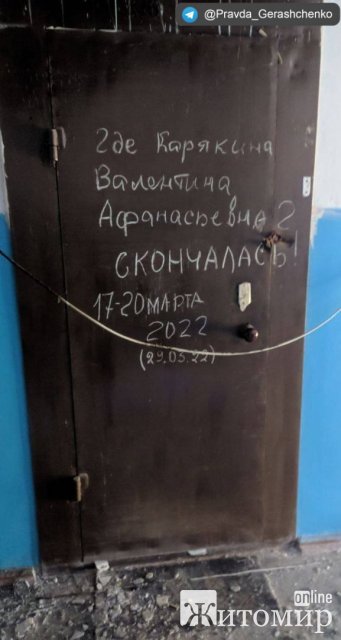 @Pravda_Gerashchenko
Где Карякина
Валентина
Афанасьевна?
СКОНЧАЛАСЬ!
17-20 МАРТА
2022
(29.03.22)
Житомир
online